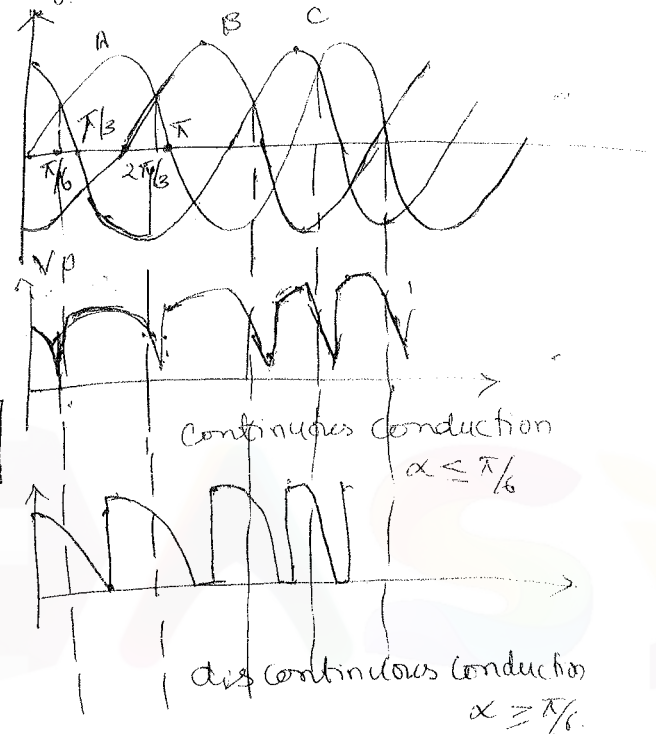 A
B
C
π/3
π
π/6
2π/3
Vp
continuous conduction
α ≤ π/6
discontinuous conduction
α ≥ π/6.